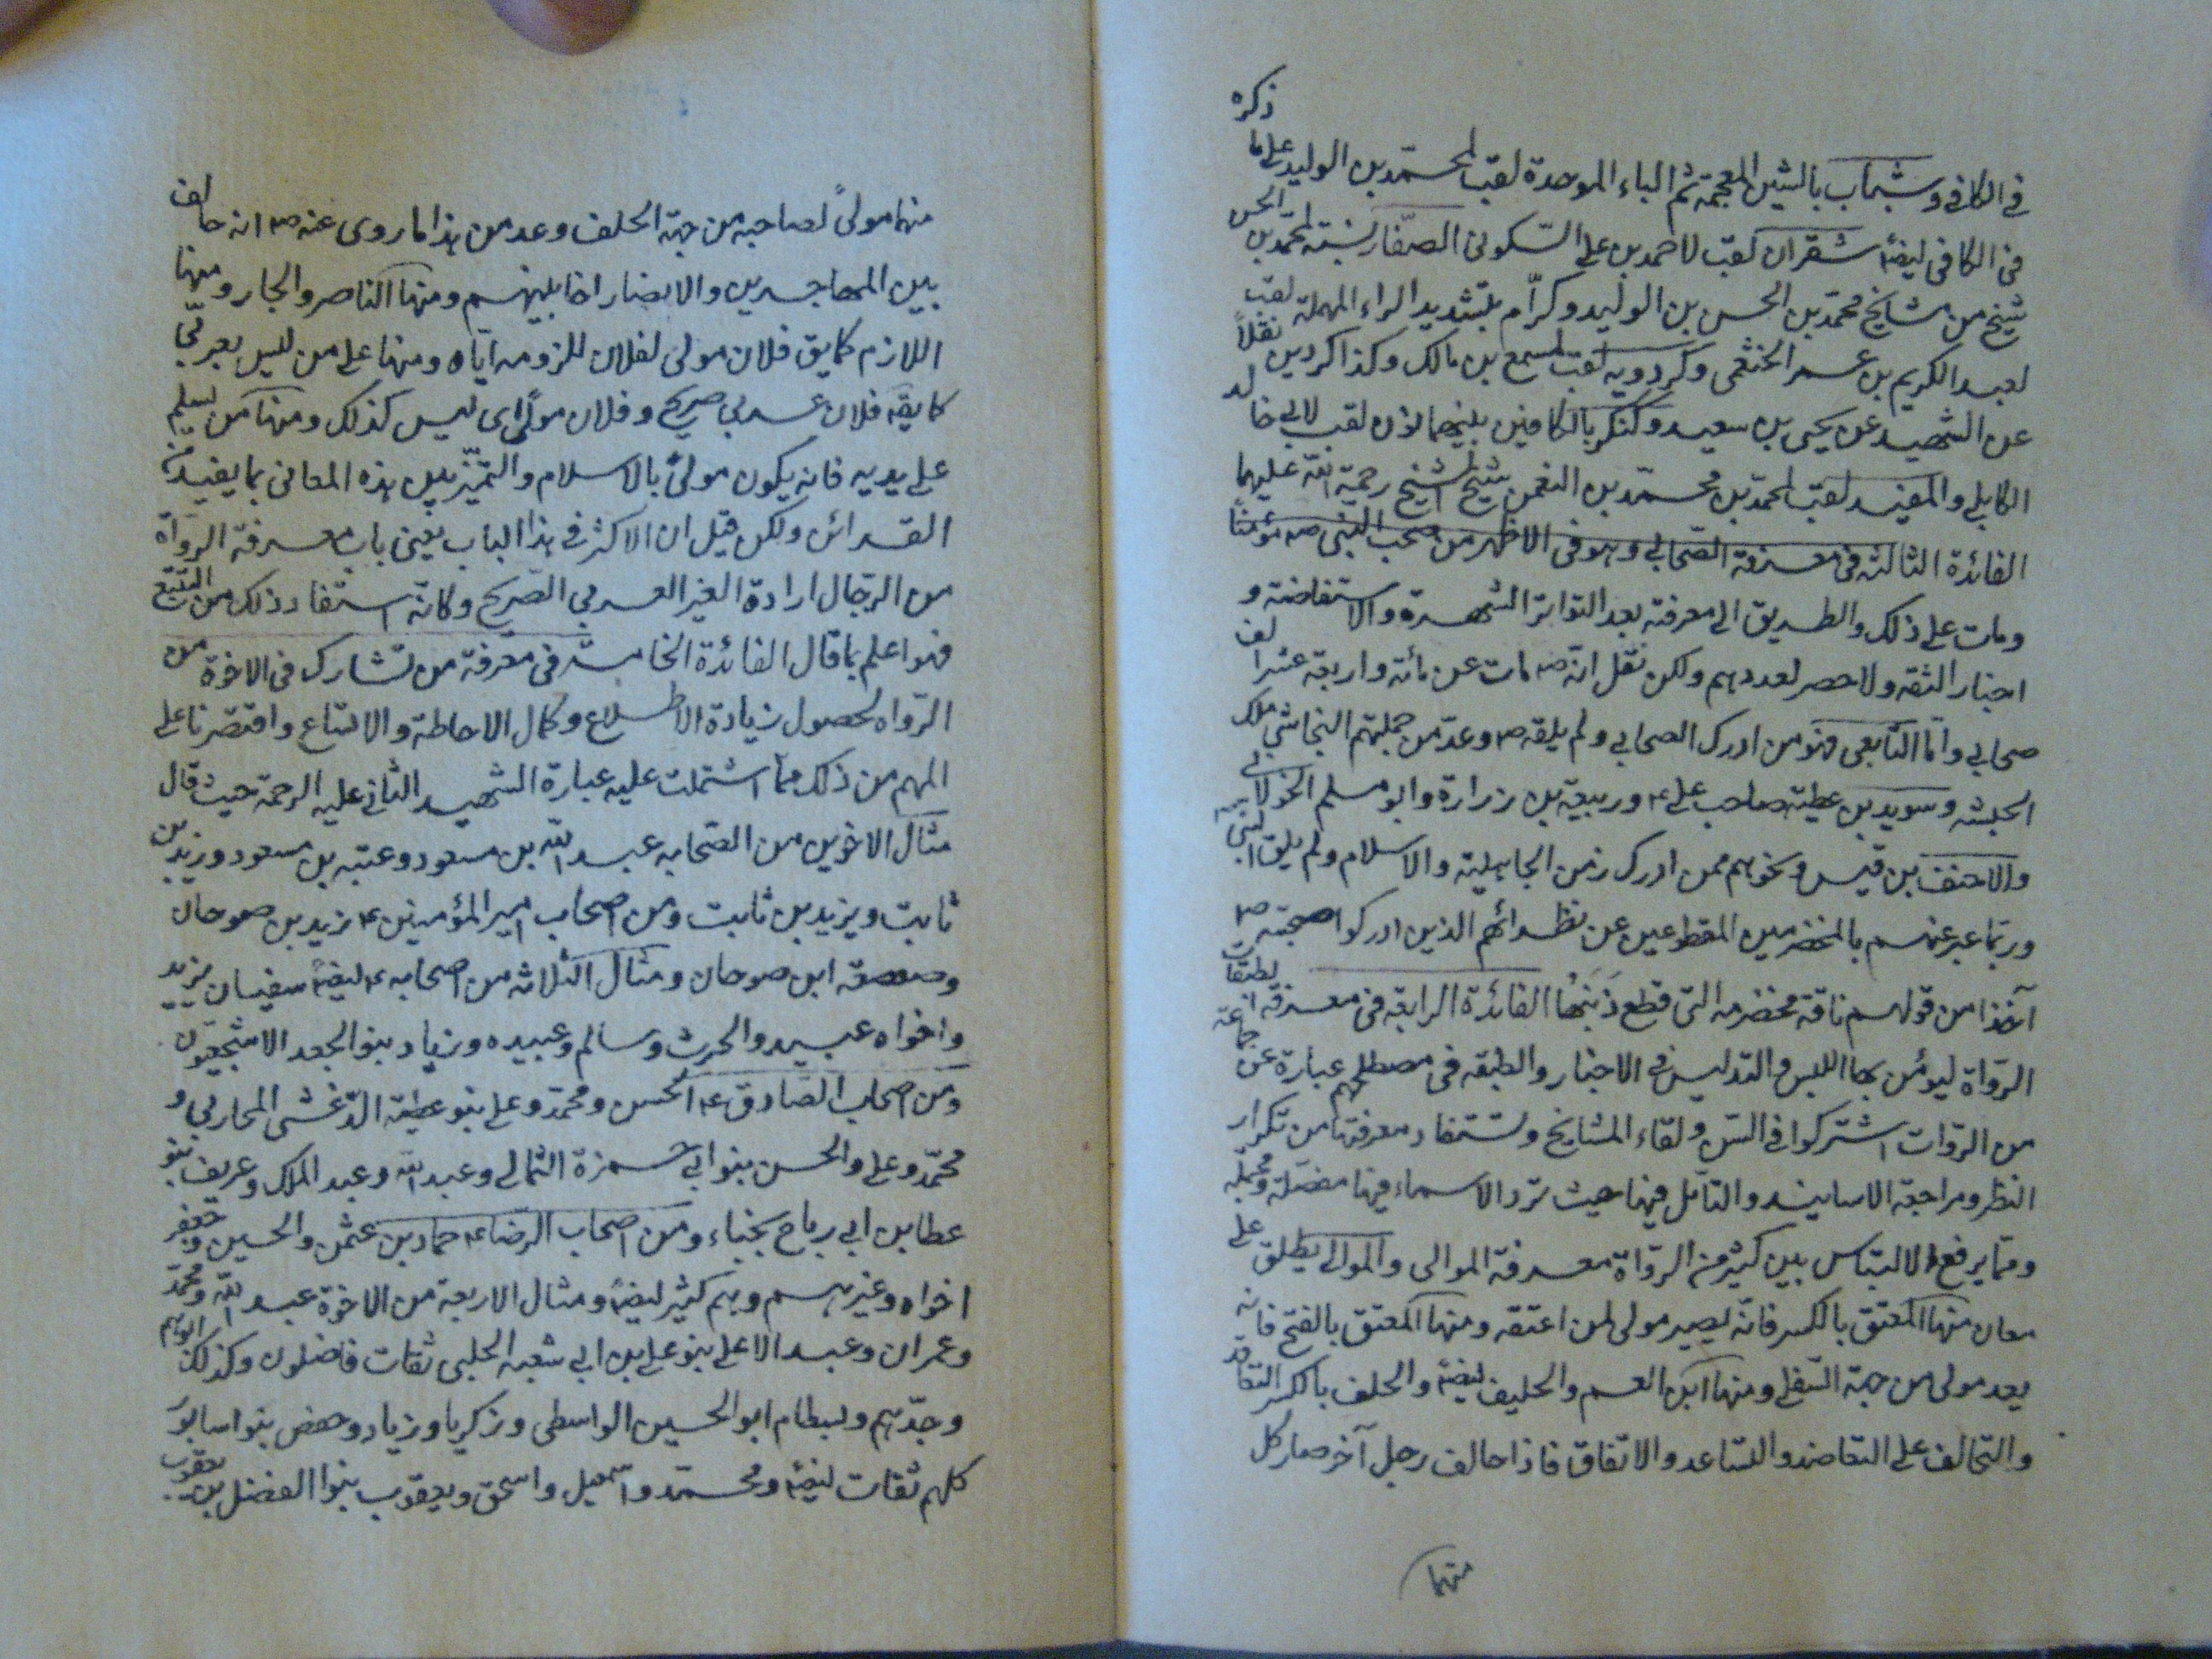 في الكافي وشباب بالشين المعجمة ثم الباء الموحدة لقب لمحمد بن الوليد على ما ذكره
في الكافي ايضا شقران لقب لاحمد بن علي السكوني الصفار نسبة لمحمد بن الحسن
شيخ من مشايخ محمد بن الحسن بن الوليد وكرّام بتشديد الراء المهملة لقب
لعبد الكريم بن عمر الخثعمي وكردويه لقب لمسمع بن مالك وكذا كردين نقلاً
عن الشهيد عن يحيى بن سعيد وكنكر بالكافين بينهما نون لقب لابي خالد
الكابلي والمفيد لقب لمحمد بن محمد بن النعمن شيخ الشيخ رحمة الله عليهما
الفائدة الثالثة في معرفة الصحابي وهو في الاظهر من صحب النبي ص مؤمناً
ومات على ذلك والطريق الى معرفته بعد التواتر الشهرة والاستفاضة و
اخبار الثقه ولا حصر لعددهم ولكن نقل انه ص مات عن مائة واربعة عشر الف
صحابي وامّا التابعي فهو من ادرك الصحابي ولم يلقه ص وعدّ من جملتهم النجاشي ملك
الحبشه وسويد بن عطية صاحب علي ع وربيعة بن زرارة وابو مسلم الخولاني
والاحنف بن قيس ونحوهم ممن ادرك زمن الجاهلية والاسلام ولم يلق النبي
وربّما عبر عنهم بالمخضرمين المقطوعين عن نظرائهم الذين ادركوا صحبته ص
آخذا من قولهم ناقة مخضرمه التي قطع ذَنَبُها الفائدة الرابعة في معرفة الطبقات
الرّواة ليؤمن بها اللبس والتدليس في الاخبار والطبقه في مصطلحهم عبارة عن جماعة
من الروات اشتركوا في السن ولقاء المشايخ وتستفاد معرفتها من تكرار
النظر ومراجعة الاسانيد والتأمل فيها حيث ترد الاسماء فيها مفصّلة ومجملة
وممّا يرفع الالتباس بين كثير من الرّواة معرفة الموالى والموالى يطلق على
معان منها المعتِق بالكسر فانّه يصير مولى لمن اعتقه ومنها المعتق بالفتح فانه
يعد مولى من جهة السفلى ومنها ابن العم والحليف ايضا والحلف بالكسر التعاقد
والتحالف على التعاضد والتساعد والاتفاق فاذا حالف رجل آخر صار كل
منهما
منهما مولىً لصاحبه من جهة الحلف وعد من هذا ما روى عنه ص انه حالف
بين المهاجرين والانصار اخا بينهم ومنها الناصر والجار ومنها
اللازم كما يق فلان مولى لفلان للزومه اياه ومنها على من ليس بعربيّ
كما يقه فلان عربي صريح وفلان مولًى اى ليس كذلك ومنها من يسلم
على يديه فانه يكون مولىً بالاسلام والتميّز بين هذه المعاني بما يفيد من
القرائن ولكن قيل ان الاكثر في هذا الباب يعني باب معرفة الرواة
من الرجال ارادة الغير العربي الصريح وكانّه استفاد ذلك من التتبع
فهو اعلم بما قال الفائدة الخامسة في معرفة من تشارك في الاخوة من
الرّواه لحصول زيادة الاطلاع وكمال الاحاطة والاتساع واقتصرنا على
المهم من ذلك مما اشتملت عليه عبارة الشهيد الثاني عليه الرحمة حيث قال
مثال الاخوين من الصحابه عبد الله بن مسعود وعتبه بن مسعود وزيد بن
ثابت ويزيد بن ثابت ومن اصحاب امير المؤمنين ع زيد بن صوحان
وصعصعة ابن صوحان ومثال الثلاثه من اصحابه ع ايضا سفيان بن يزيد
واخواه عبيد والحرث وسالم وعبيده وزياد بنو الجعد الاشجعيون
ومن اصحاب الصادق ع الحسن ومحمد وعلي بنو عطية الدغشى المحاربي و
محمّد وعلي والحسن بنو ابي حمزة الثمالي وعبد الله وعبد الملك وعريف بنو
عطا بن ابي رباح نجباء ومن اصحاب الرضا ع حماد بن عثمن والحسين وجعفر
اخواه وغيرهم وهم كثير ايضاً ومثال الاربعة من الاخوة عبد الله ومحمد
وعمران وعبد الاعلى بنو علي بن ابي شعبه الحلبي ثقات فاضلون وكذلك ابوهم
وجدّهم وبسطام ابو الحسين الواسطي وزكريا وزياد وحفص بنو سابور
كلهم ثقات ايضا ومحمد واسمعيل واسحق ويعقوب بنو الفضل بن يعقوب